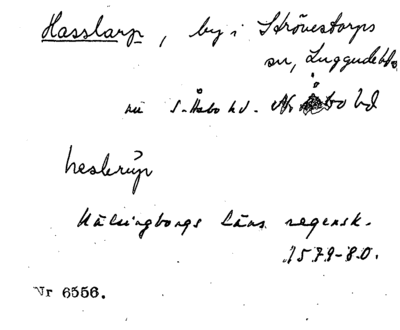 Hasslarp, by i Strövestorps
sn, Luggude hd.
nu S. Åsbo hd. N. Åsbo hd
heslerup
Hälsingborgs Läns regensk.
1579-80.
Nr 6556.